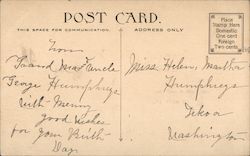 POST CARD.
THIS SPACE FOR COMMUNICATION.
ADDRESS ONLY
Place
Stamp Here
Domestic
One cent
Foreign
Two cents
From
Grand Ma & Uncle
George Humphreys
with Many
good wishes
for your Birth
Day
Miss Helen, Martha
Humphreys
Tekoa
Washington